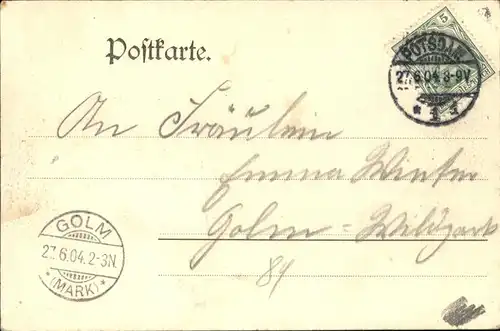 Postkarte.
5
POTSDAM
27.6.04.8-9V.
* 1 d
An Fräulein
Emma Winter
Golm-Wildpark
84
GOLM
27.6.04.2-3N.
*(MARK)*